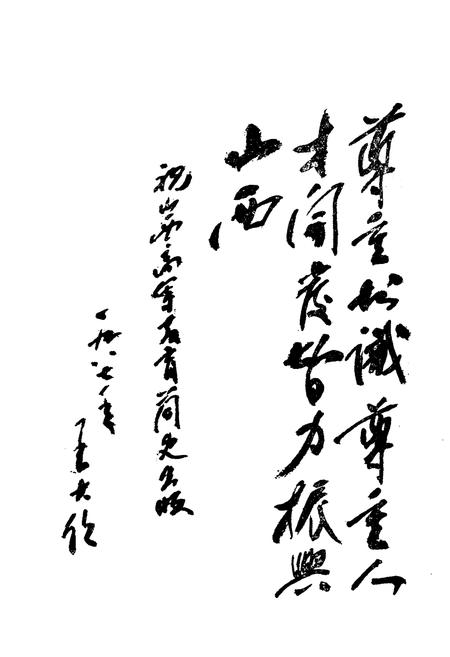 尊重知識尊重人
才開發智力振興
山西
祝山西高等教育简史出版
一九八七年 王大任